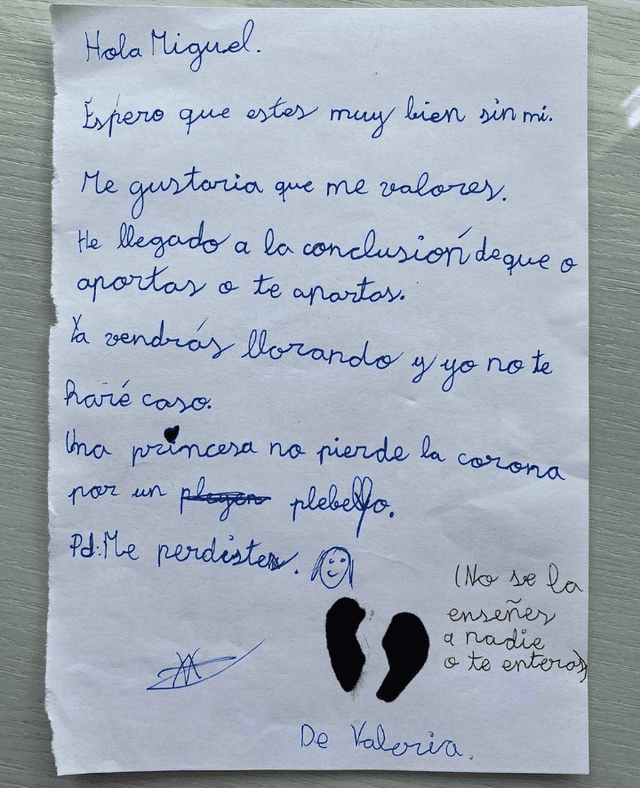 Hola Miguel.
Espero que estes muy bien sin mi.
Me gustaria que me valores.
He llegado a la conclusión de que o
aportas o te apartas.
Ya vendrás llorando y yo no te
haré caso.
Una princesa no pierde la corona
por un plebello.
Pd: Me perdistes.
(No se la
enseñes
a nadie
o te enteras)
De Valeria.